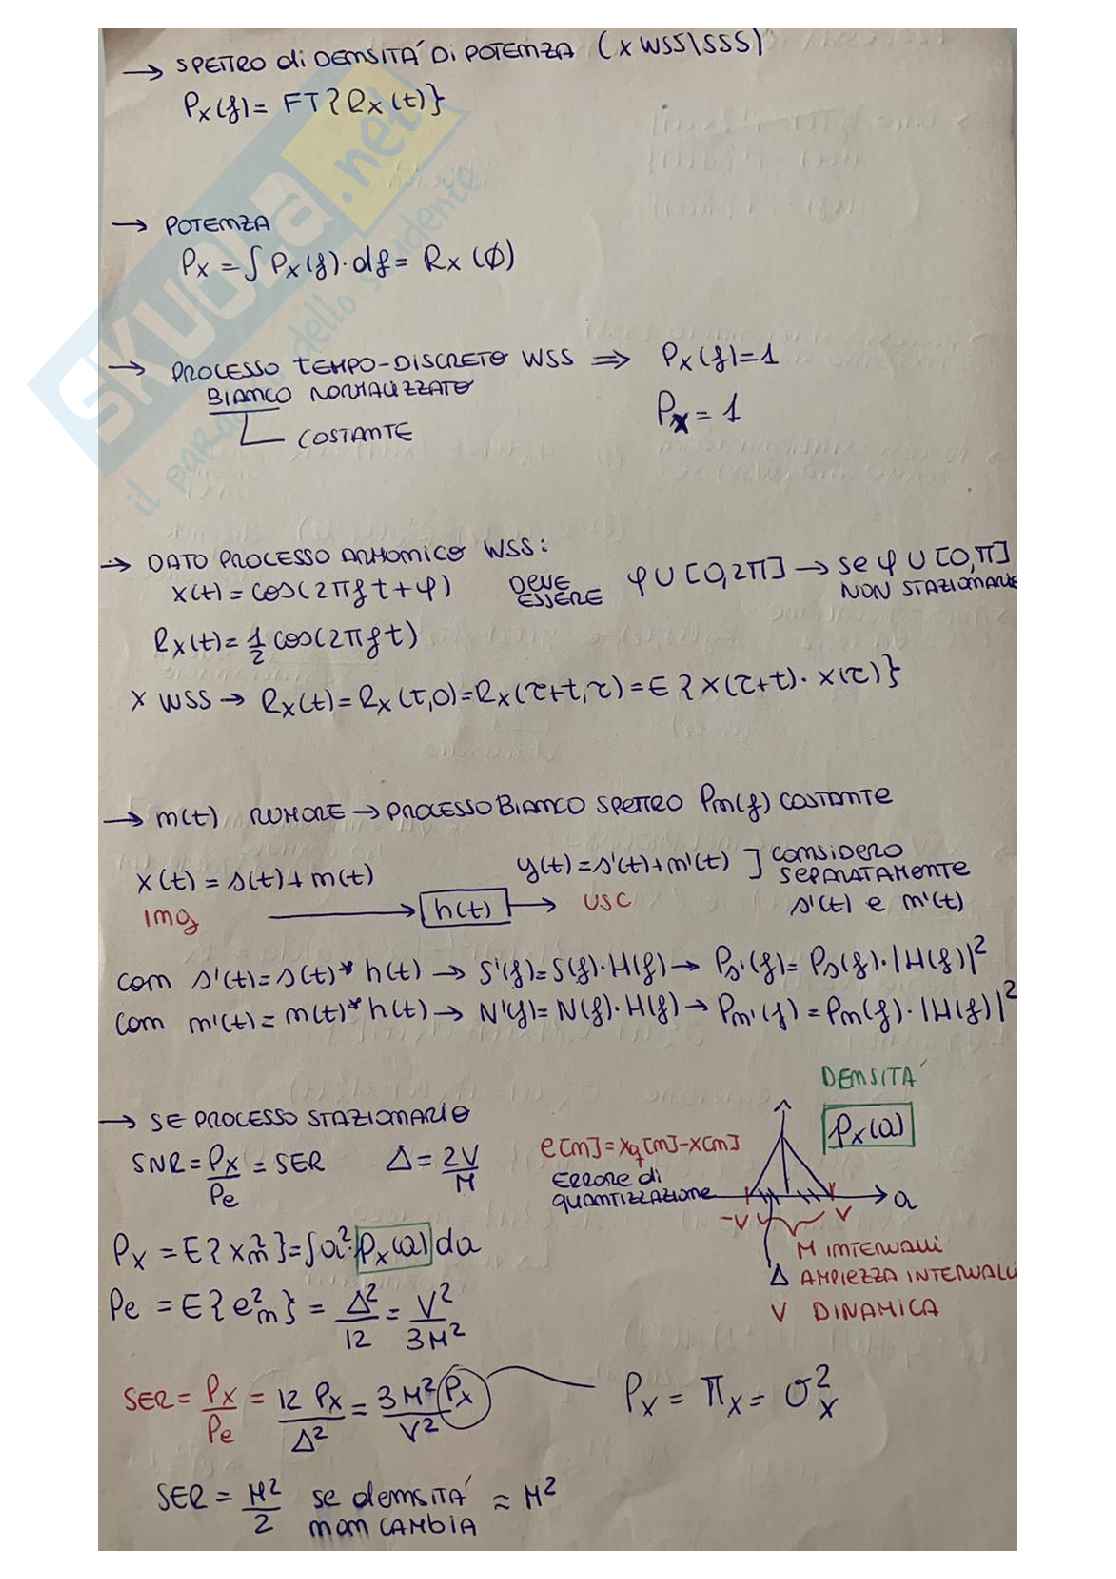 → SPETTRO di DENSITÀ DI POTENZA (x WSS\SSS)
Px(f) = FT{Rx(t)}
→ POTENZA
Px = ∫Px(f)·df = Rx(∅)
→ PROCESSO TEMPO-DISCRETO WSS ⇒ Px(f)=1
BIANCO NORMALIZZATO
Px = 1
COSTANTE
SKUOLA.net
il paradiso dello studente
→ DATO PROCESSO ARMONICO WSS:
x(t) = cos(2πft+φ) DEVE ESSERE φ U [0,2π] → se φ U [0,π] NON STAZIONARIE
Rx(t) = 1/2 cos(2πft)
x WSS → Rx(t) = Rx(τ,0) = Rx(τ+t,τ) = E{x(τ+t)·x(τ)}
→ n(t) RUMORE → PROCESSO BIANCO SPETTRO Pn(f) COSTANTE
x(t) = s(t)+n(t)
y(t) = s'(t)+n'(t) ] CONSIDERO SEPARATAMENTE s'(t) e n'(t)
Ing → h(t) → USC
con s'(t) = s(t)*h(t) → S'(f) = S(f)·H(f) → Ps'(f) = Ps(f)·|H(f)|²
con n'(t) = n(t)*h(t) → N'(f) = N(f)·H(f) → Pn'(f) = Pn(f)·|H(f)|²
DENSITÀ
px(a)
→ SE PROCESSO STAZIONARIO
SNR = Px/Pe = SER Δ = 2V/M
e[n] = xq[n]-x[n]
ERRORE di
QUANTIZZAZIONE
a
-V V
M INTERVALLI
Δ AMPIEZZA INTERVALLI
V DINAMICA
Px = E{x²n} = ∫a²·px(a) da
Pe = E{e²n} = Δ²/12 = V²/3M²
SER = Px/Pe = 12 Px/Δ² = 3M²/V² Px
Px = πx = σ²x
SER = M²/2 se densità non CAMBIA ≈ M²